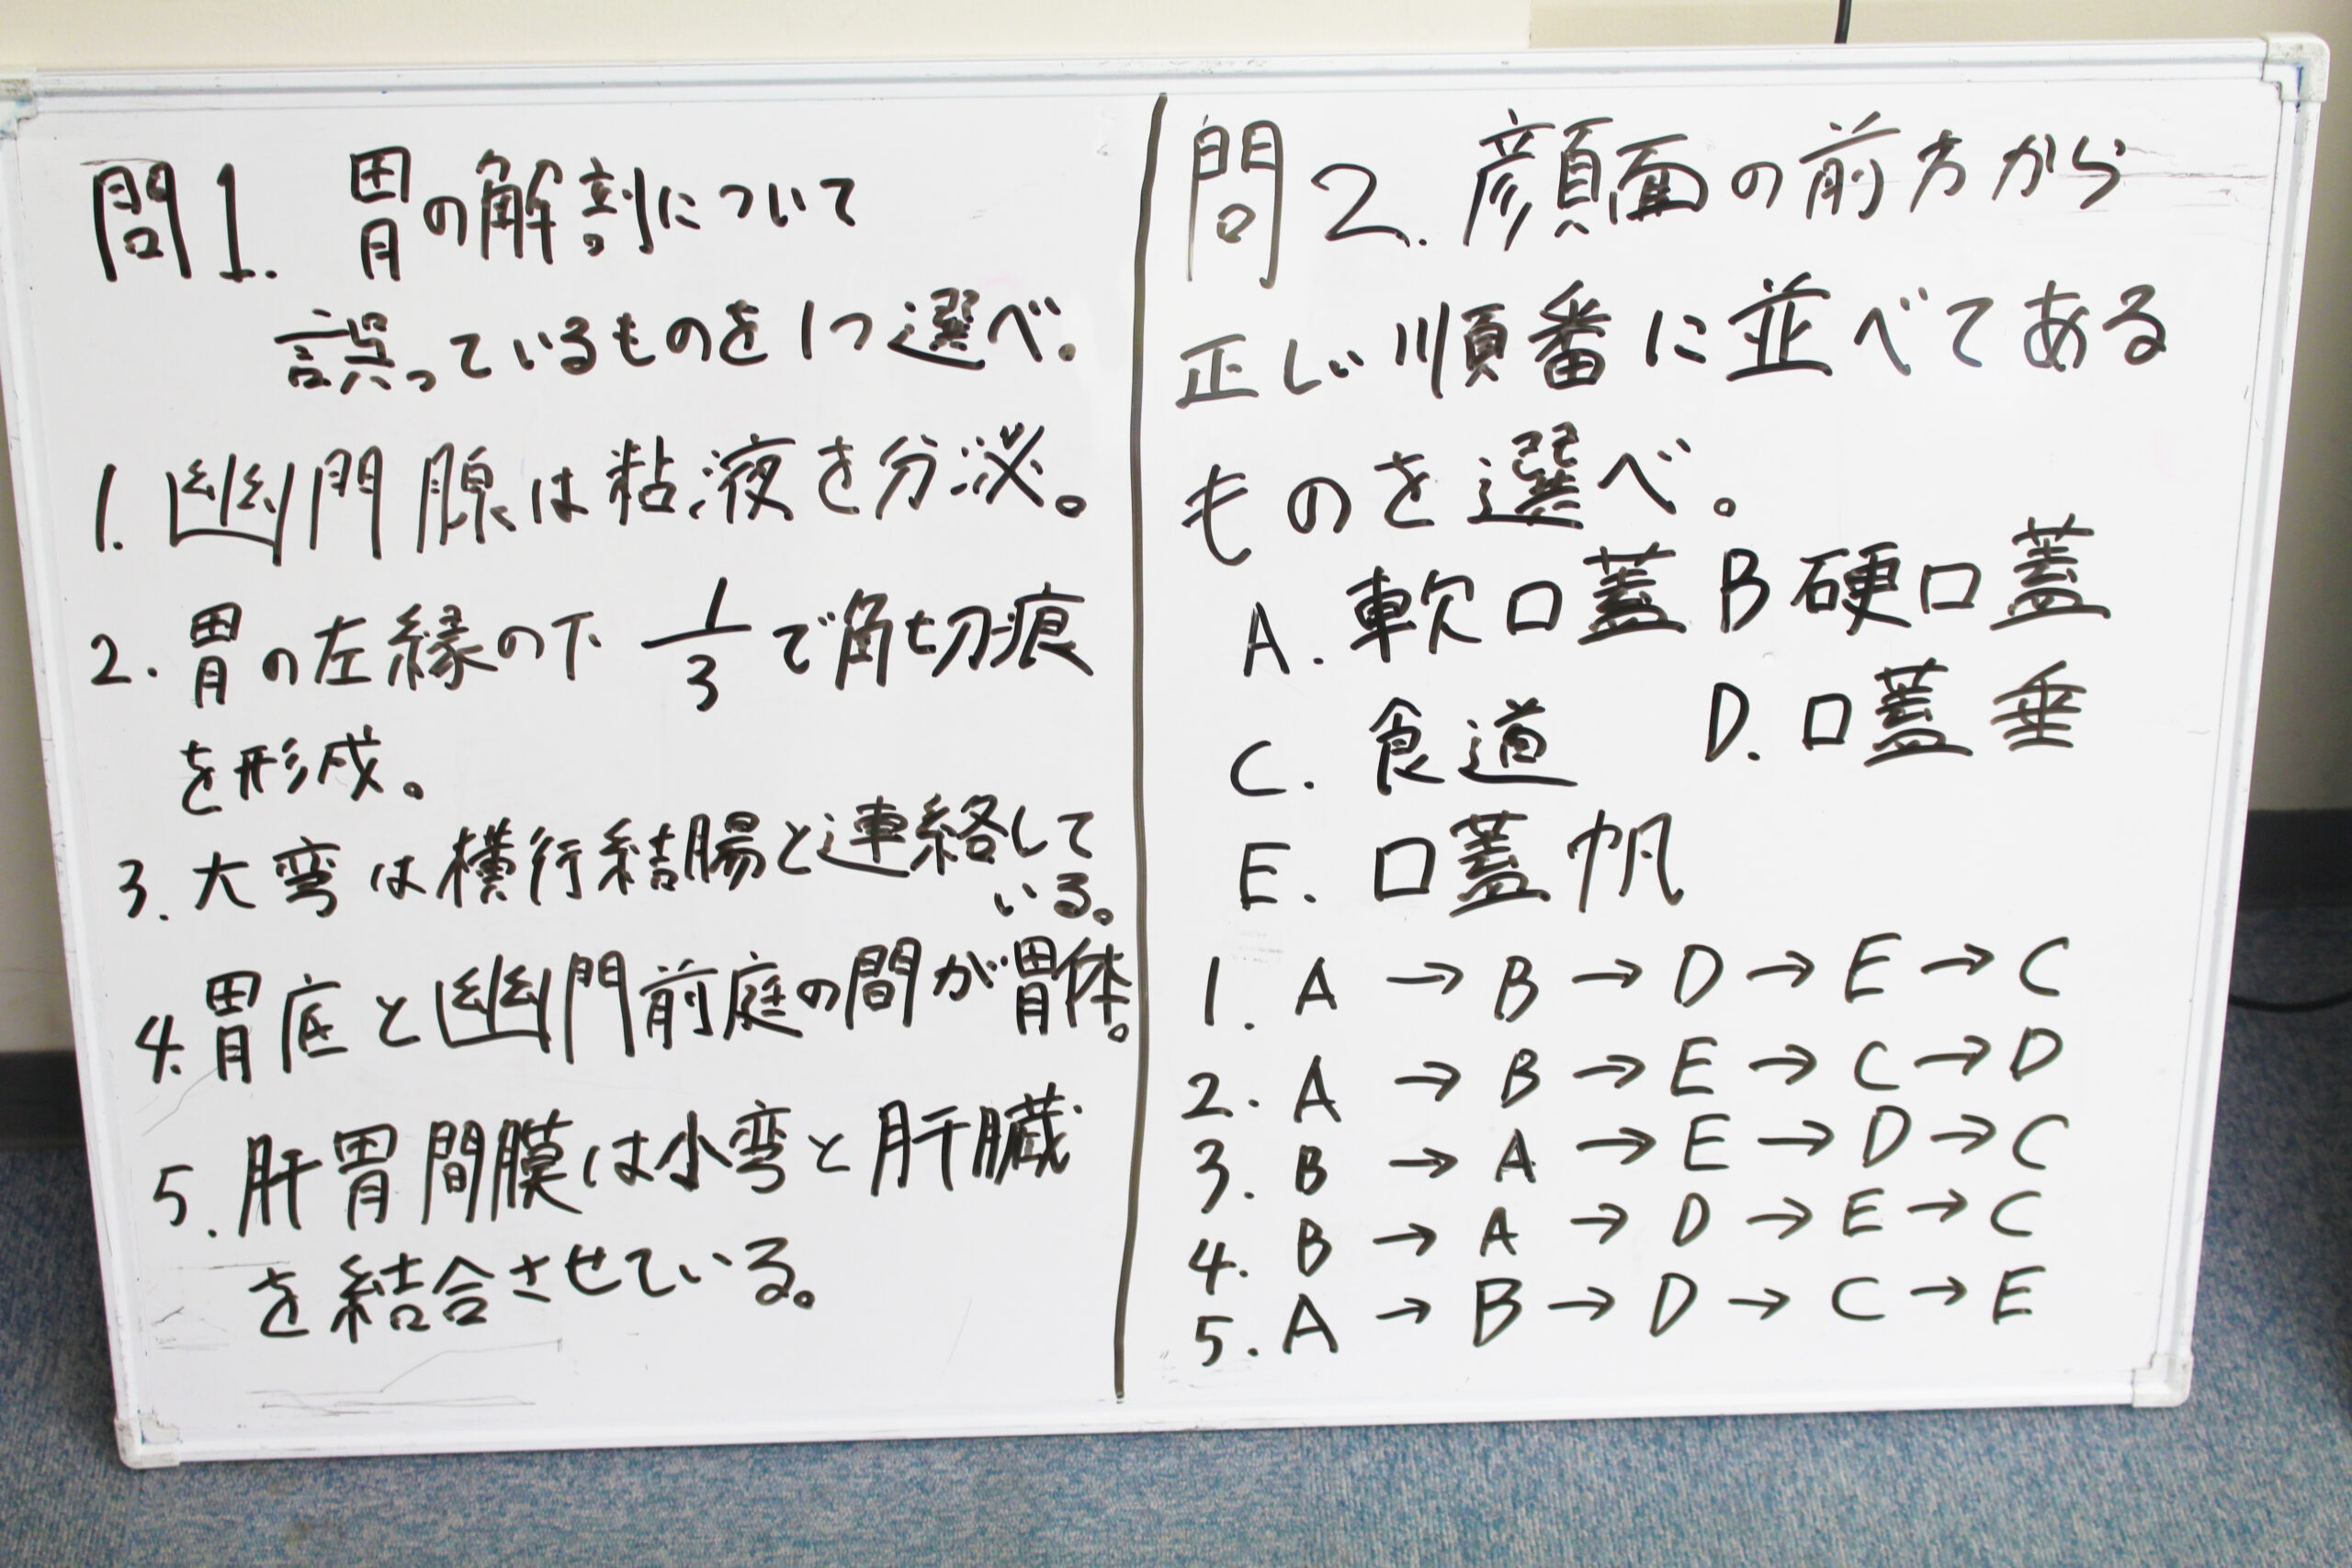 問1. 胃の解剖について
誤っているものを1つ選べ.
1. 幽門腺は粘液を分泌。
2. 胃の左縁の下 1/3 で角切痕
を形成。
3. 大弯は横行結腸と連絡して
いる。
4. 胃底と幽門前庭の間が胃体。
5. 肝胃間膜は小弯と肝臓
を結合させている。
問2. 顔面の前方から
正しい順番に並べてある
ものを選べ。
A. 軟口蓋 B 硬口蓋
C. 食道 D. 口蓋垂
E. 口蓋帆
1. A → B → D → E → C
2. A → B → E → C → D
3. B → A → E → D → C
4. B → A → D → E → C
5. A → B → D → C → E